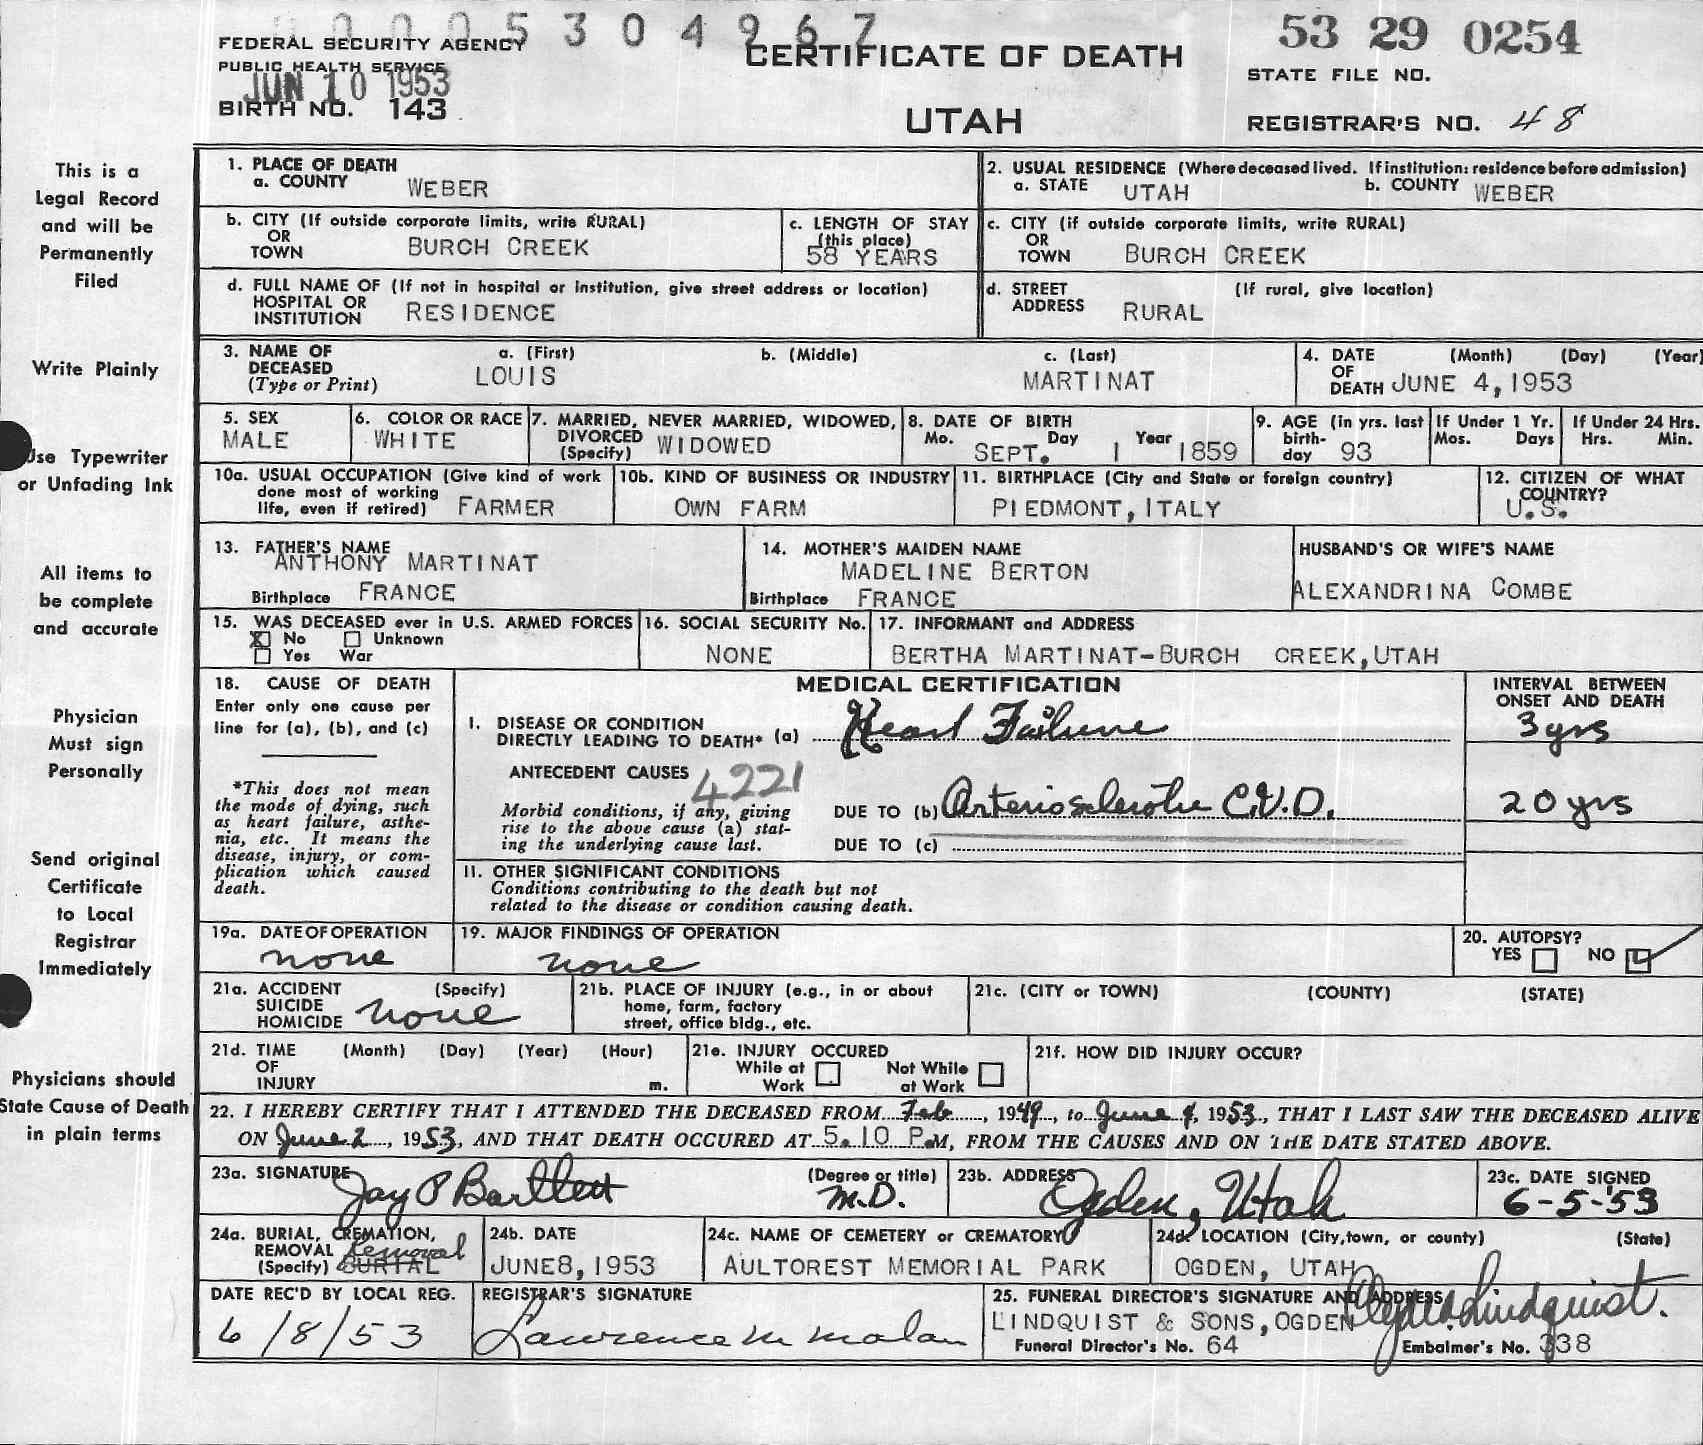 0005304967
FEDERAL SECURITY AGENCY
PUBLIC HEALTH SERVICE
JUN 10 1953
BIRTH NO. 143
CERTIFICATE OF DEATH
UTAH
53 29 0254
STATE FILE NO.
REGISTRAR'S NO. 48
This is a
Legal Record
and will be
Permanently
Filed
Write Plainly
Use Typewriter
or Unfading Ink
All items to
be complete
and accurate
Physician
Must sign
Personally
Send original
Certificate
to Local
Registrar
Immediately
Physicians should
State Cause of Death
in plain terms
1. PLACE OF DEATH
a. COUNTY WEBER
2. USUAL RESIDENCE (Where deceased lived. If institution: residence before admission)
a. STATE UTAH b. COUNTY WEBER
b. CITY (If outside corporate limits, write RURAL)
OR
TOWN BURCH CREEK
c. LENGTH OF STAY
(this place)
58 YEARS
c. CITY (if outside corporate limits, write RURAL)
OR
TOWN BURCH CREEK
d. FULL NAME OF (If not in hospital or institution, give street address or location)
HOSPITAL OR
INSTITUTION RESIDENCE
d. STREET (If rural, give location)
ADDRESS RURAL
3. NAME OF a. (First) b. (Middle) c. (Last)
DECEASED
(Type or Print) LOUIS MARTINAT
4. DATE (Month) (Day) (Year)
OF
DEATH JUNE 4, 1953
5. SEX
MALE
6. COLOR OR RACE
WHITE
7. MARRIED, NEVER MARRIED, WIDOWED,
DIVORCED
(Specify) WIDOWED
8. DATE OF BIRTH
Mo. Day Year
SEPT. 1 1859
9. AGE (in yrs. last
birth-
day 93
If Under 1 Yr.
Mos. Days
If Under 24 Hrs.
Hrs. Min.
10a. USUAL OCCUPATION (Give kind of work
done most of working
life, even if retired) FARMER
10b. KIND OF BUSINESS OR INDUSTRY
OWN FARM
11. BIRTHPLACE (City and State or foreign country)
PIEDMONT, ITALY
12. CITIZEN OF WHAT
COUNTRY?
U.S.
13. FATHER'S NAME
ANTHONY MARTINAT
Birthplace FRANCE
14. MOTHER'S MAIDEN NAME
MADELINE BERTON
Birthplace FRANCE
HUSBAND'S OR WIFE'S NAME
ALEXANDRINA COMBE
15. WAS DECEASED ever in U.S. ARMED FORCES
X No Unknown
Yes War
16. SOCIAL SECURITY No.
NONE
17. INFORMANT and ADDRESS
BERTHA MARTINAT-BURCH CREEK, UTAH
18. CAUSE OF DEATH
Enter only one cause per
line for (a), (b), and (c)
*This does not mean
the mode of dying, such
as heart failure, asthe-
nia, etc. It means the
disease, injury, or com-
plication which caused
death.
MEDICAL CERTIFICATION
INTERVAL BETWEEN
ONSET AND DEATH
I. DISEASE OR CONDITION
DIRECTLY LEADING TO DEATH* (a) Heart Failure 3 yrs
ANTECEDENT CAUSES 4221
Morbid conditions, if any, giving
rise to the above cause (a) stat-
ing the underlying cause last.
DUE TO (b) Arteriosclerotic C.V.D. 20 yrs
DUE TO (c)
II. OTHER SIGNIFICANT CONDITIONS
Conditions contributing to the death but not
related to the disease or condition causing death.
19a. DATE OF OPERATION
none
19. MAJOR FINDINGS OF OPERATION
none
20. AUTOPSY?
YES NO
21a. ACCIDENT (Specify)
SUICIDE
HOMICIDE none
21b. PLACE OF INJURY (e.g., in or about
home, farm, factory
street, office bldg., etc.
21c. (CITY or TOWN) (COUNTY) (STATE)
21d. TIME (Month) (Day) (Year) (Hour)
OF
INJURY m.
21e. INJURY OCCURED
While at Not While
Work at Work
21f. HOW DID INJURY OCCUR?
22. I HEREBY CERTIFY THAT I ATTENDED THE DECEASED FROM Feb, 1949, to June 4, 1953, THAT I LAST SAW THE DECEASED ALIVE
ON June 2, 1953, AND THAT DEATH OCCURED AT 5.10 P.M, FROM THE CAUSES AND ON THE DATE STATED ABOVE.
23a. SIGNATURE (Degree or title)
Jay P Bartlett M.D.
23b. ADDRESS
Ogden, Utah
23c. DATE SIGNED
6-5-'53
24a. BURIAL, CREMATION,
REMOVAL Removal
(Specify) BURIAL
24b. DATE
JUNE8, 1953
24c. NAME OF CEMETERY or CREMATORY
AULTOREST MEMORIAL PARK
24d. LOCATION (City, town, or county) (State)
OGDEN, UTAH
DATE REC'D BY LOCAL REG.
6/8/53
REGISTRAR'S SIGNATURE
Lawrence M Malan
25. FUNERAL DIRECTOR'S SIGNATURE AND ADDRESS
LINDQUIST & SONS, OGDEN Clyde Lindquist.
Funeral Director's No. 64 Embalmer's No. 338